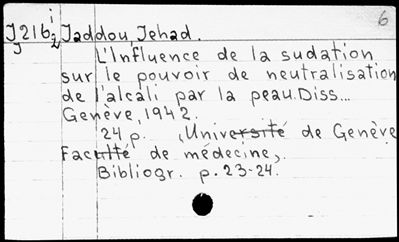 6
J216i2 Jaddou, Jehad.
J
L'Influence de la sudation
sur le pouvoir de neutralisation
de l'alcali par la peau. Diss...
Genève, 1942.
24 p. (Université de Genève
Faculté de médecine,.
Bibliogr. p. 23-24.